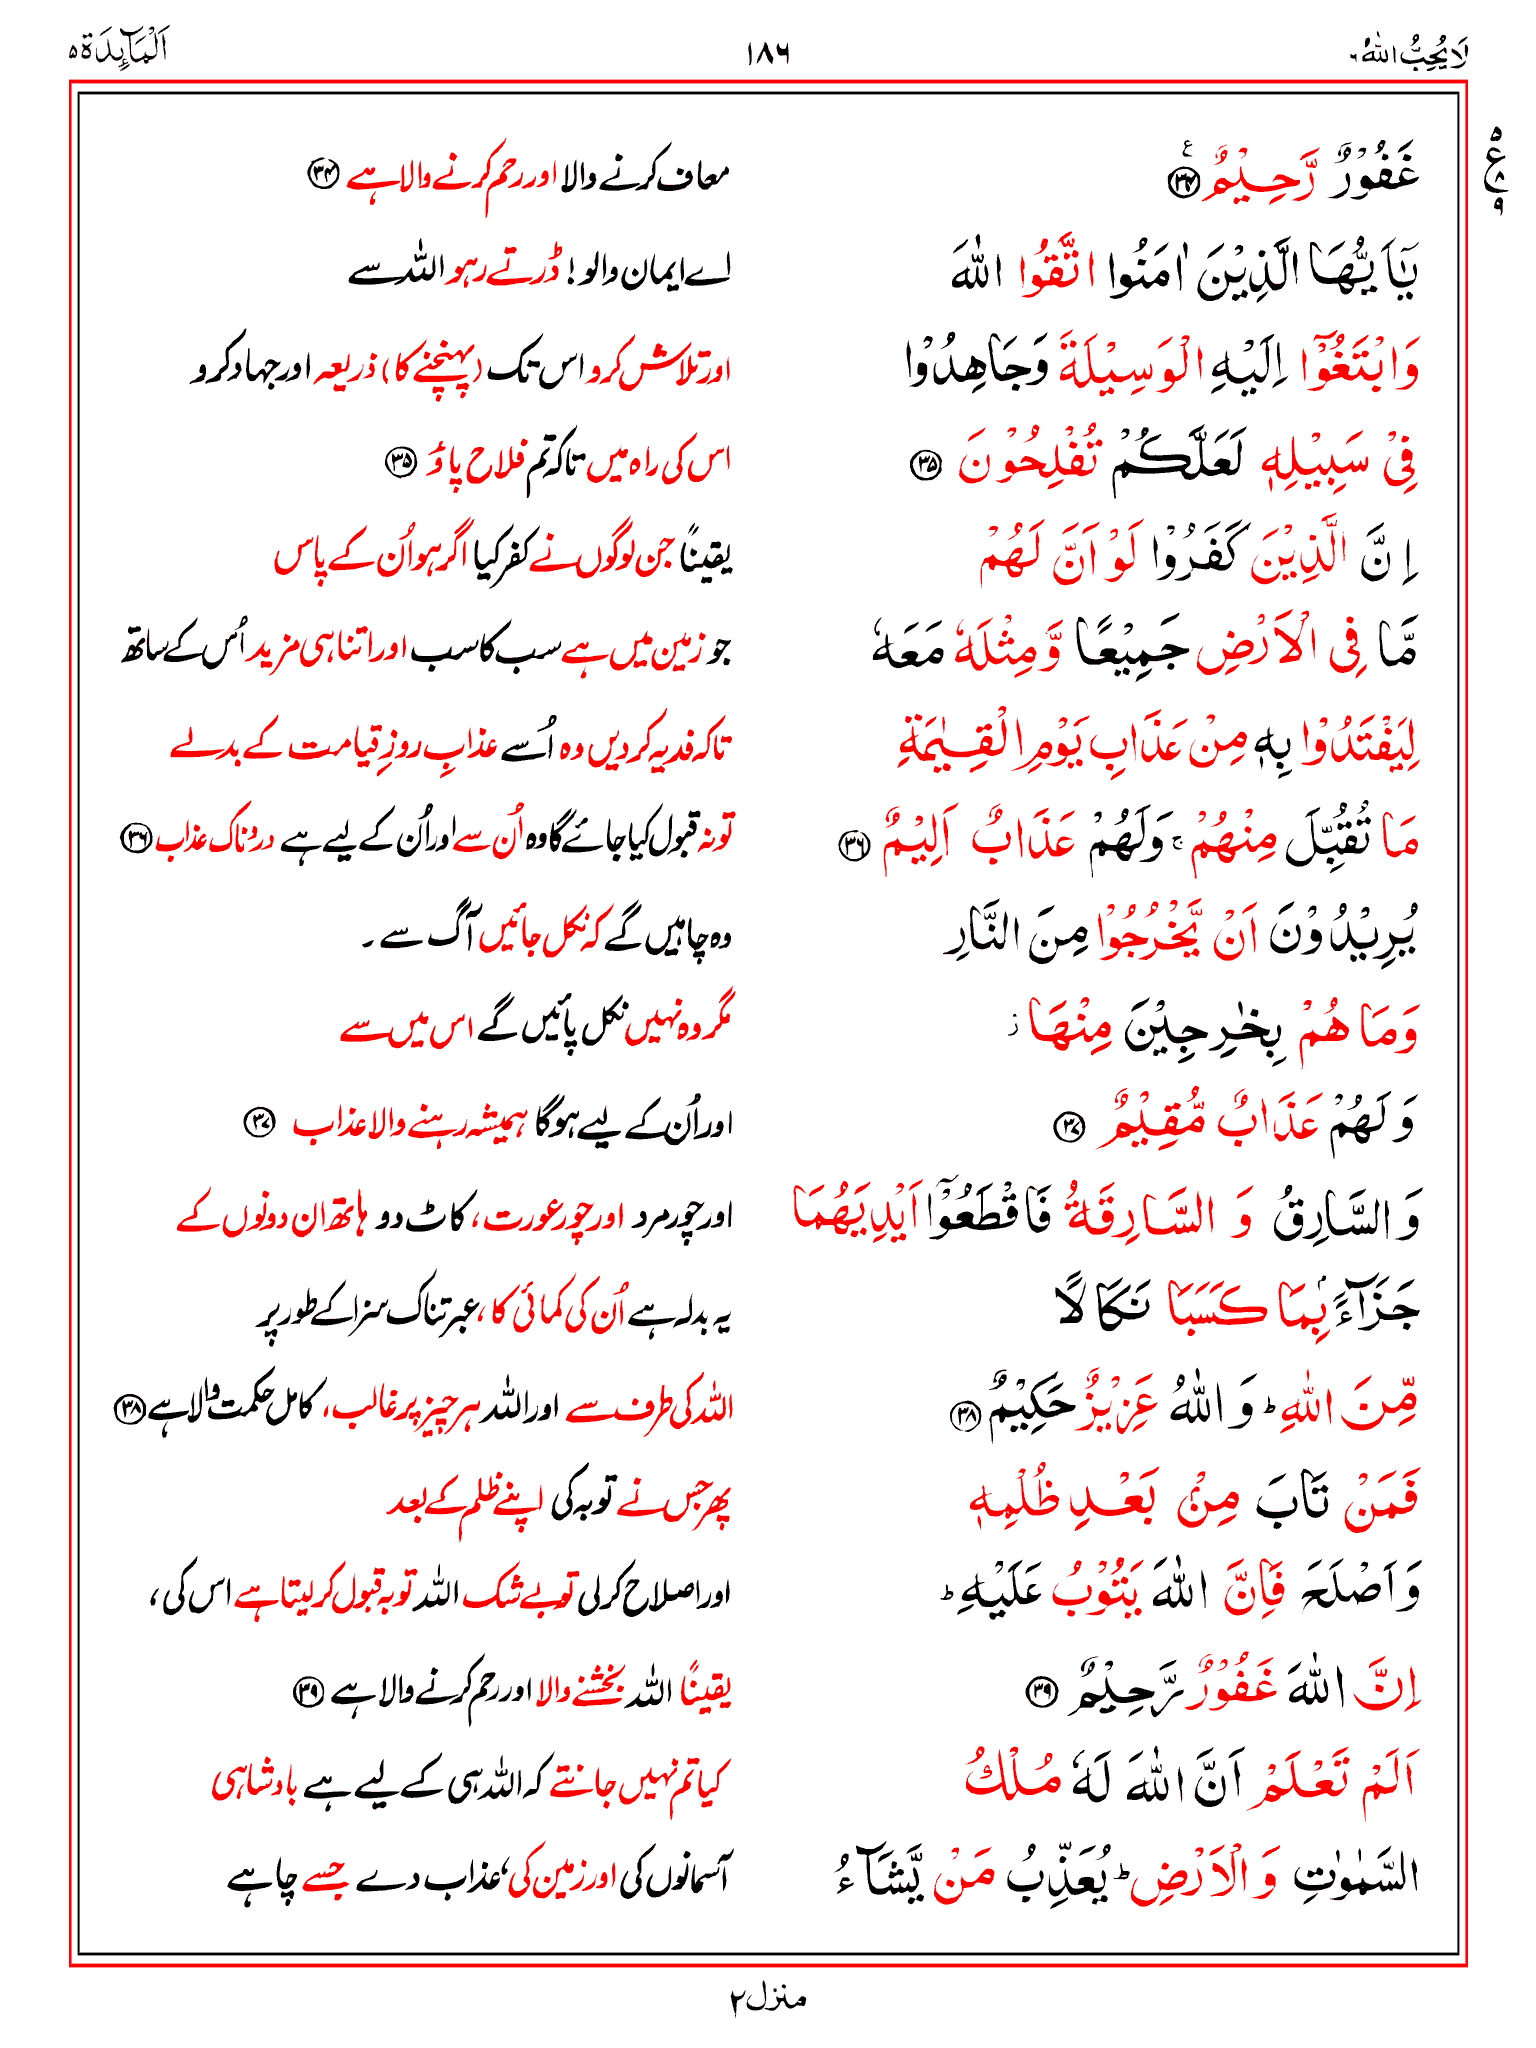 لَا یُحِبُّ اللّٰهُ ٦ ١٨٦ اَلْمَآىِٕدَة ٥
٥ ع ٨ ٩
غَفُوْرٌ رَّحِیْمٌ ۧ ﴿٣٤﴾ معاف کرنے والا اور رحم کرنے والا ہے ﴿٣٤﴾
یٰۤاَیُّهَا الَّذِیْنَ اٰمَنُوا اتَّقُوا اللّٰهَ اے ایمان والو! ڈرتے رہو اللہ سے
وَابْتَغُوْۤا اِلَیْهِ الْوَسِیْلَةَ وَجَاهِدُوْا اور تلاش کرو اس تک (پہنچنے کا) ذریعہ اور جہاد کرو
فِیْ سَبِیْلِهٖ لَعَلَّكُمْ تُفْلِحُوْنَ ﴿٣٥﴾ اس کی راہ میں تاکہ تم فلاح پاؤ ﴿٣٥﴾
اِنَّ الَّذِیْنَ كَفَرُوْا لَوْ اَنَّ لَهُمْ یقیناً جن لوگوں نے کفر کیا اگر ہو اُن کے پاس
مَّا فِی الْاَرْضِ جَمِیْعًا وَّمِثْلَهٗ مَعَهٗ جو زمین میں ہے سب کا سب اور اتنا ہی مزید اُس کے ساتھ
لِیَفْتَدُوْا بِهٖ مِنْ عَذَابِ یَوْمِ الْقِیٰمَةِ تاکہ فدیہ کر دیں وہ اُسے عذابِ روزِ قیامت کے بدلے
مَا تُقُبِّلَ مِنْهُمْ ۚ وَلَهُمْ عَذَابٌ اَلِیْمٌ ﴿٣٦﴾ تو نہ قبول کیا جائے گا وہ اُن سے اور اُن کے لیے ہے دردناک عذاب ﴿٣٦﴾
یُرِیْدُوْنَ اَنْ یَّخْرُجُوْا مِنَ النَّارِ وہ چاہیں گے کہ نکل جائیں آگ سے۔
وَمَا هُمْ بِخٰرِجِیْنَ مِنْهَا ؗ مگر وہ نہیں نکل پائیں گے اس میں سے
وَلَهُمْ عَذَابٌ مُّقِیْمٌ ﴿٣٧﴾ اور اُن کے لیے ہوگا ہمیشہ رہنے والا عذاب ﴿٣٧﴾
وَالسَّارِقُ وَالسَّارِقَةُ فَاقْطَعُوْۤا اَیْدِیَهُمَا اور چور مرد اور چور عورت، کاٹ دو ہاتھ ان دونوں کے
جَزَآءًۢ بِمَا كَسَبَا نَكَالًا یہ بدلہ ہے اُن کی کمائی کا، عبرتناک سزا کے طور پر
مِّنَ اللّٰهِ ؕ وَاللّٰهُ عَزِیْزٌ حَكِیْمٌ ﴿٣٨﴾ اللہ کی طرف سے اور اللہ ہر چیز پر غالب، کامل حکمت والا ہے ﴿٣٨﴾
فَمَنْ تَابَ مِنْۢ بَعْدِ ظُلْمِهٖ پھر جس نے توبہ کی اپنے ظلم کے بعد
وَاَصْلَحَ فَاِنَّ اللّٰهَ یَتُوْبُ عَلَیْهِ ؕ اور اصلاح کرلی تو بے شک اللہ توبہ قبول کر لیتا ہے اس کی،
اِنَّ اللّٰهَ غَفُوْرٌ رَّحِیْمٌ ﴿٣٩﴾ یقیناً اللہ بخشنے والا اور رحم کرنے والا ہے ﴿٣٩﴾
اَلَمْ تَعْلَمْ اَنَّ اللّٰهَ لَهٗ مُلْكُ کیا تم نہیں جانتے کہ اللہ ہی کے لیے ہے بادشاہی
السَّمٰوٰتِ وَالْاَرْضِ ؕ یُعَذِّبُ مَنْ یَّشَآءُ آسمانوں کی اور زمین کی، عذاب دے جسے چاہے
منزل ٢